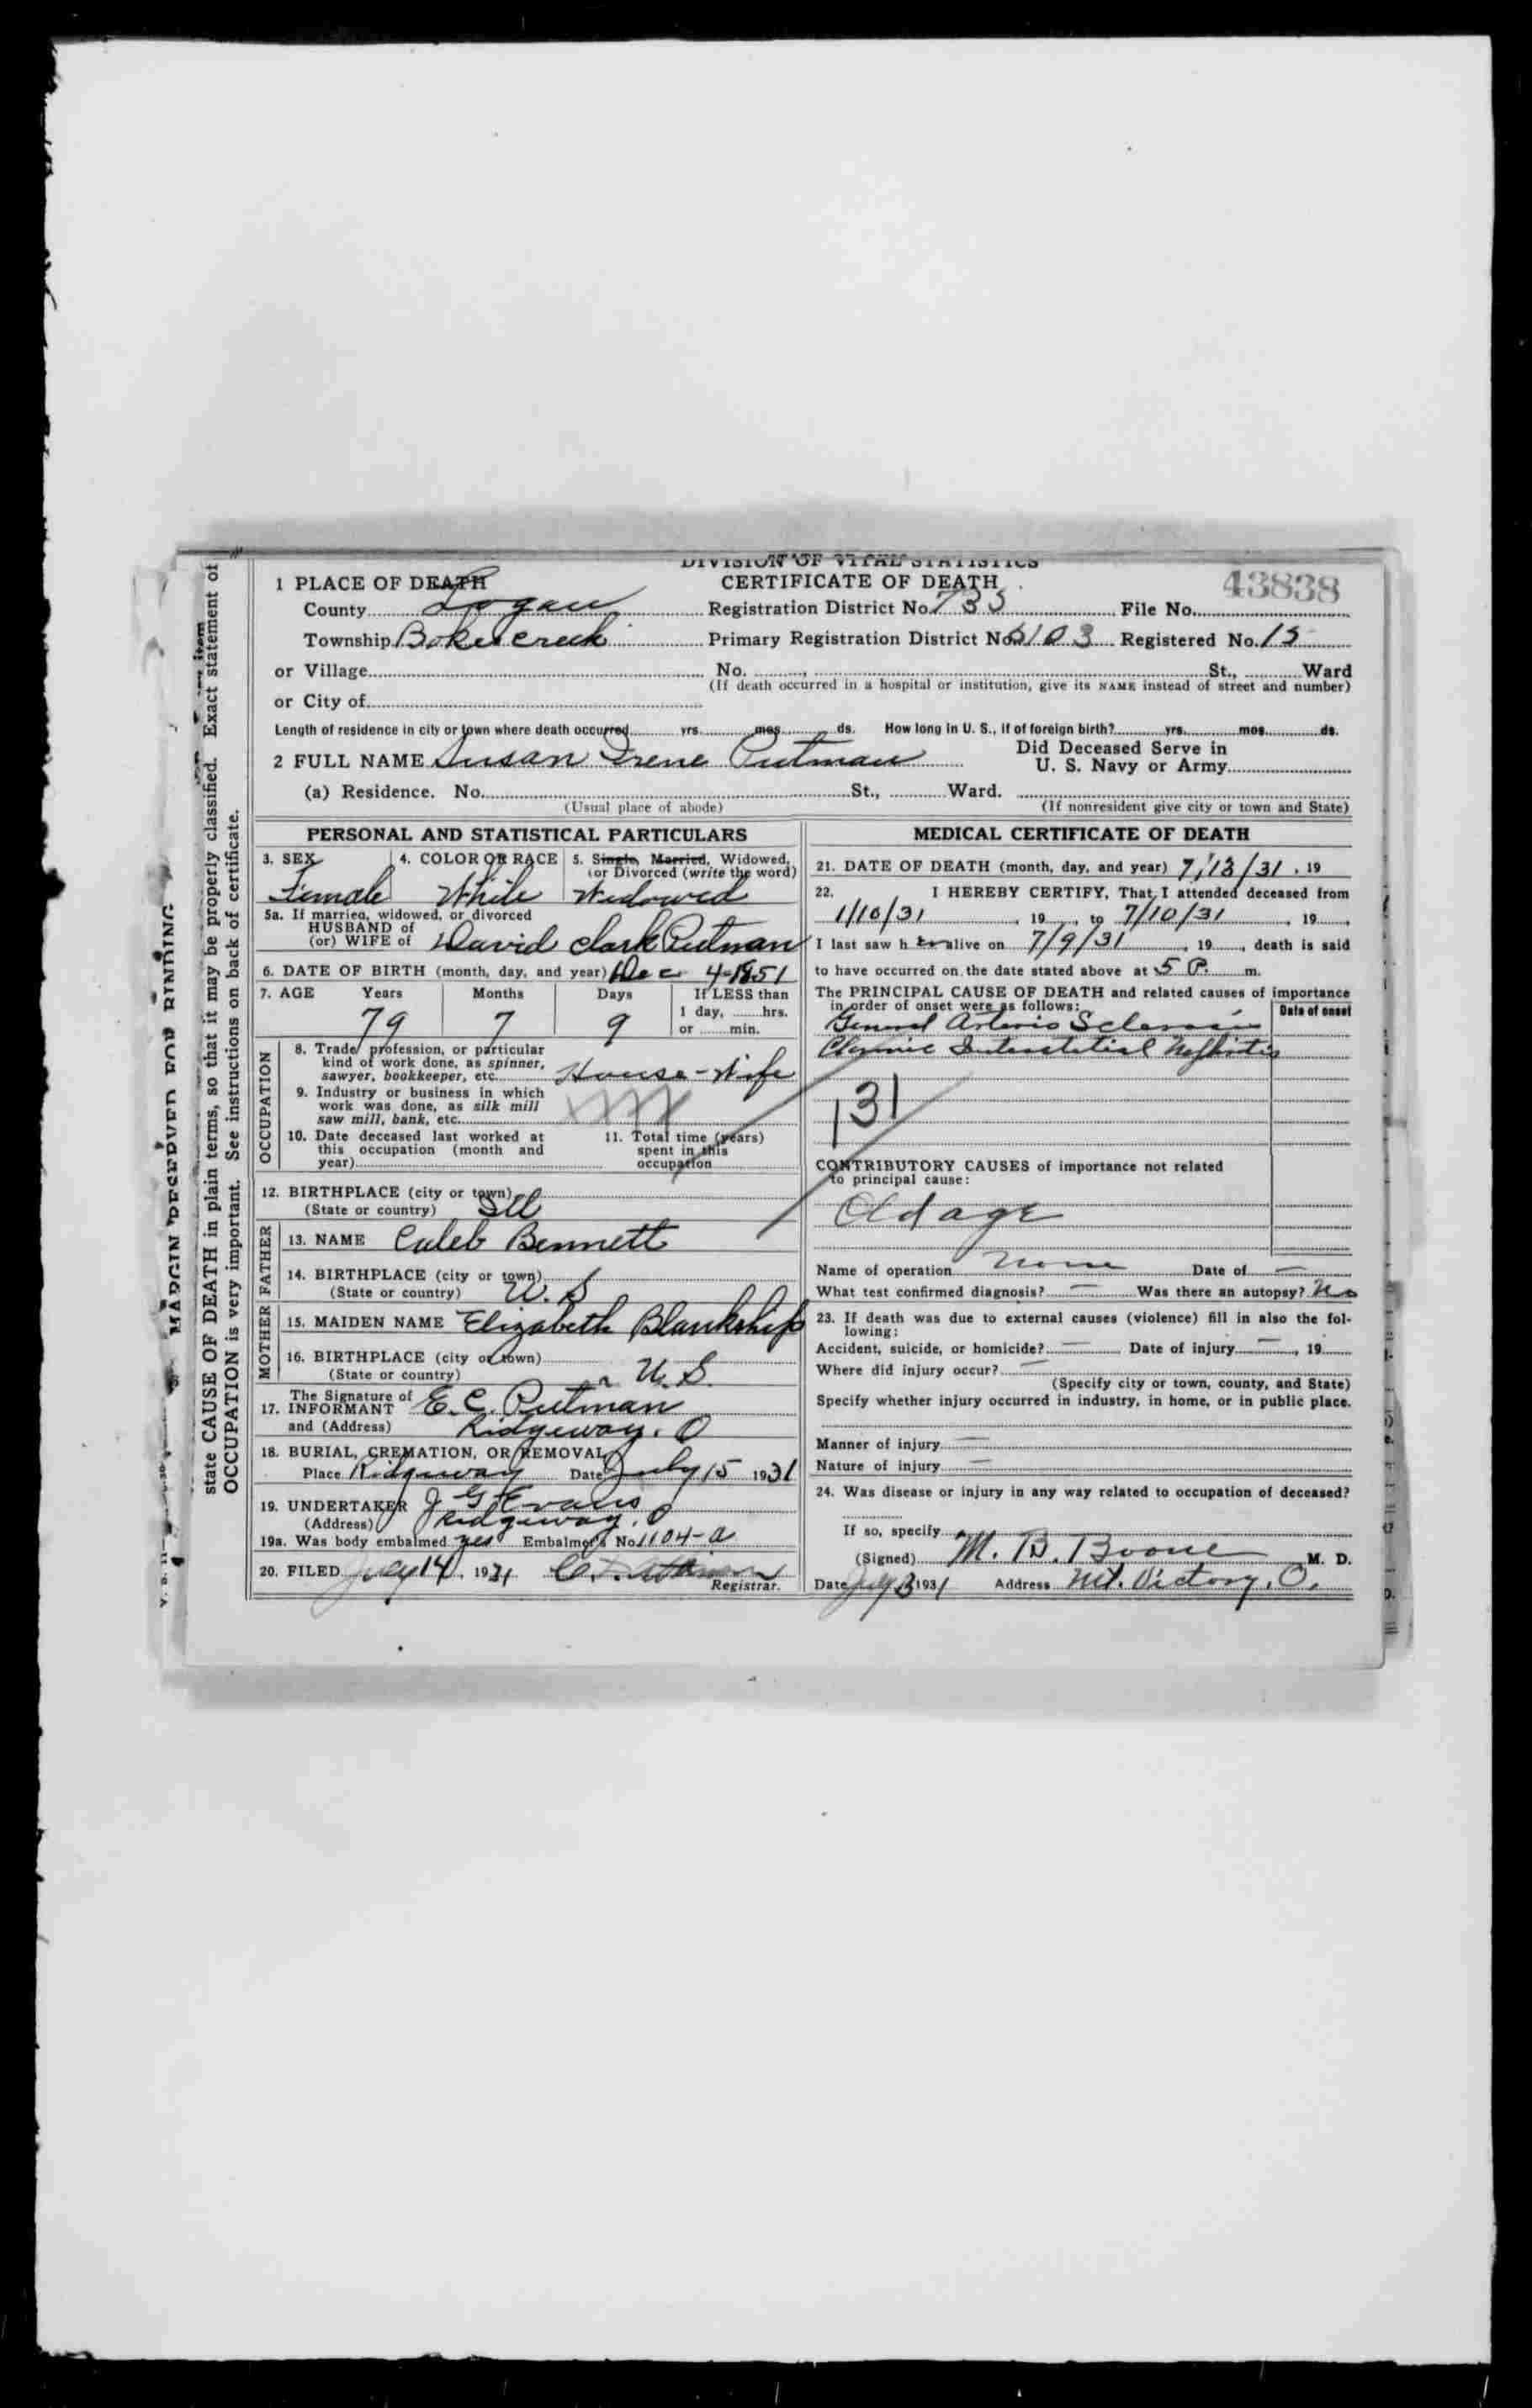 DIVISION OF VITAL STATISTICS
1 PLACE OF DEATH CERTIFICATE OF DEATH 43838
County Logan Registration District No. 735 File No.
Township Bokescreek Primary Registration District No. 5103 Registered No. 15
or Village No. St., Ward
(If death occurred in a hospital or institution, give its NAME instead of street and number)
or City of
Length of residence in city or town where death occurred yrs. mos. ds. How long in U. S., if of foreign birth? yrs. mos. ds.
2 FULL NAME Susan Irene Putman Did Deceased Serve in
U. S. Navy or Army
(a) Residence. No. St., Ward.
(Usual place of abode) (If nonresident give city or town and State)
PERSONAL AND STATISTICAL PARTICULARS
3. SEX 4. COLOR OR RACE 5. Single, Married, Widowed,
(or Divorced (write the word)
Female White Widowed
5a. If married, widowed, or divorced
HUSBAND of
(or) WIFE of David Clark Putman
6. DATE OF BIRTH (month, day, and year) Dec 4-1851
7. AGE Years Months Days If LESS than
1 day, hrs.
or min.
79 7 9
OCCUPATION
8. Trade, profession, or particular
kind of work done, as spinner,
sawyer, bookkeeper, etc. House-Wife
9. Industry or business in which
work was done, as silk mill
saw mill, bank, etc.
10. Date deceased last worked at
this occupation (month and
year)
11. Total time (years)
spent in this
occupation
12. BIRTHPLACE (city or town)
(State or country) Ill
FATHER
13. NAME Caleb Bennett
14. BIRTHPLACE (city or town)
(State or country) U. S
MOTHER
15. MAIDEN NAME Elizabeth Blankship
16. BIRTHPLACE (city or town)
(State or country) U. S.
The Signature of
17. INFORMANT E. C. Putman
and (Address) Ridgeway, O
18. BURIAL, CREMATION, OR REMOVAL
Place Ridgeway Date July 15 1931
19. UNDERTAKER J G Evans
(Address) Ridgeway, O
19a. Was body embalmed yes Embalmer's No. 1104-a
20. FILED July 14, 1931
Registrar.
MEDICAL CERTIFICATE OF DEATH
21. DATE OF DEATH (month, day, and year) 7/13/31, 19
22. I HEREBY CERTIFY, That I attended deceased from
1/10/31, 19 , to 7/10/31, 19 ,
I last saw h er alive on 7/9/31, 19 , death is said
to have occurred on the date stated above at 5 P. m.
The PRINCIPAL CAUSE OF DEATH and related causes of importance
in order of onset were as follows: Date of onset
General Arterio Sclerosis
Chronic Interstitial Nephritis
131
CONTRIBUTORY CAUSES of importance not related
to principal cause:
Old age
Name of operation None Date of —
What test confirmed diagnosis? — Was there an autopsy? No
23. If death was due to external causes (violence) fill in also the fol-
lowing:
Accident, suicide, or homicide? — Date of injury —, 19
Where did injury occur? —
(Specify city or town, county, and State)
Specify whether injury occurred in industry, in home, or in public place.
Manner of injury —
Nature of injury —
24. Was disease or injury in any way related to occupation of deceased?
If so, specify
(Signed) M. B. Boone M. D.
Date July 13 1931 Address Mt. Victory, O.
MARGIN RESERVED FOR BINDING
state CAUSE OF DEATH in plain terms, so that it may be properly classified. Exact statement of
OCCUPATION is very important. See instructions on back of certificate.